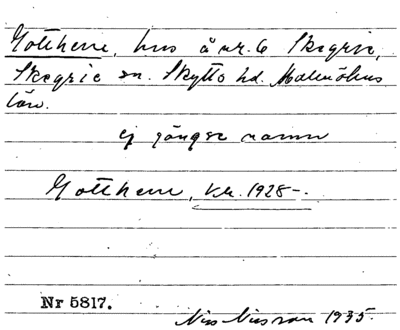 Gotthem, hus å nr. 6 Skegrie,
Skegrie sn. Skytts hd. Malmöhus
län.
ej gängse namn
Gotthem, K.R. 1928-.
Nr 5817.
Nils Nilsson 1935.